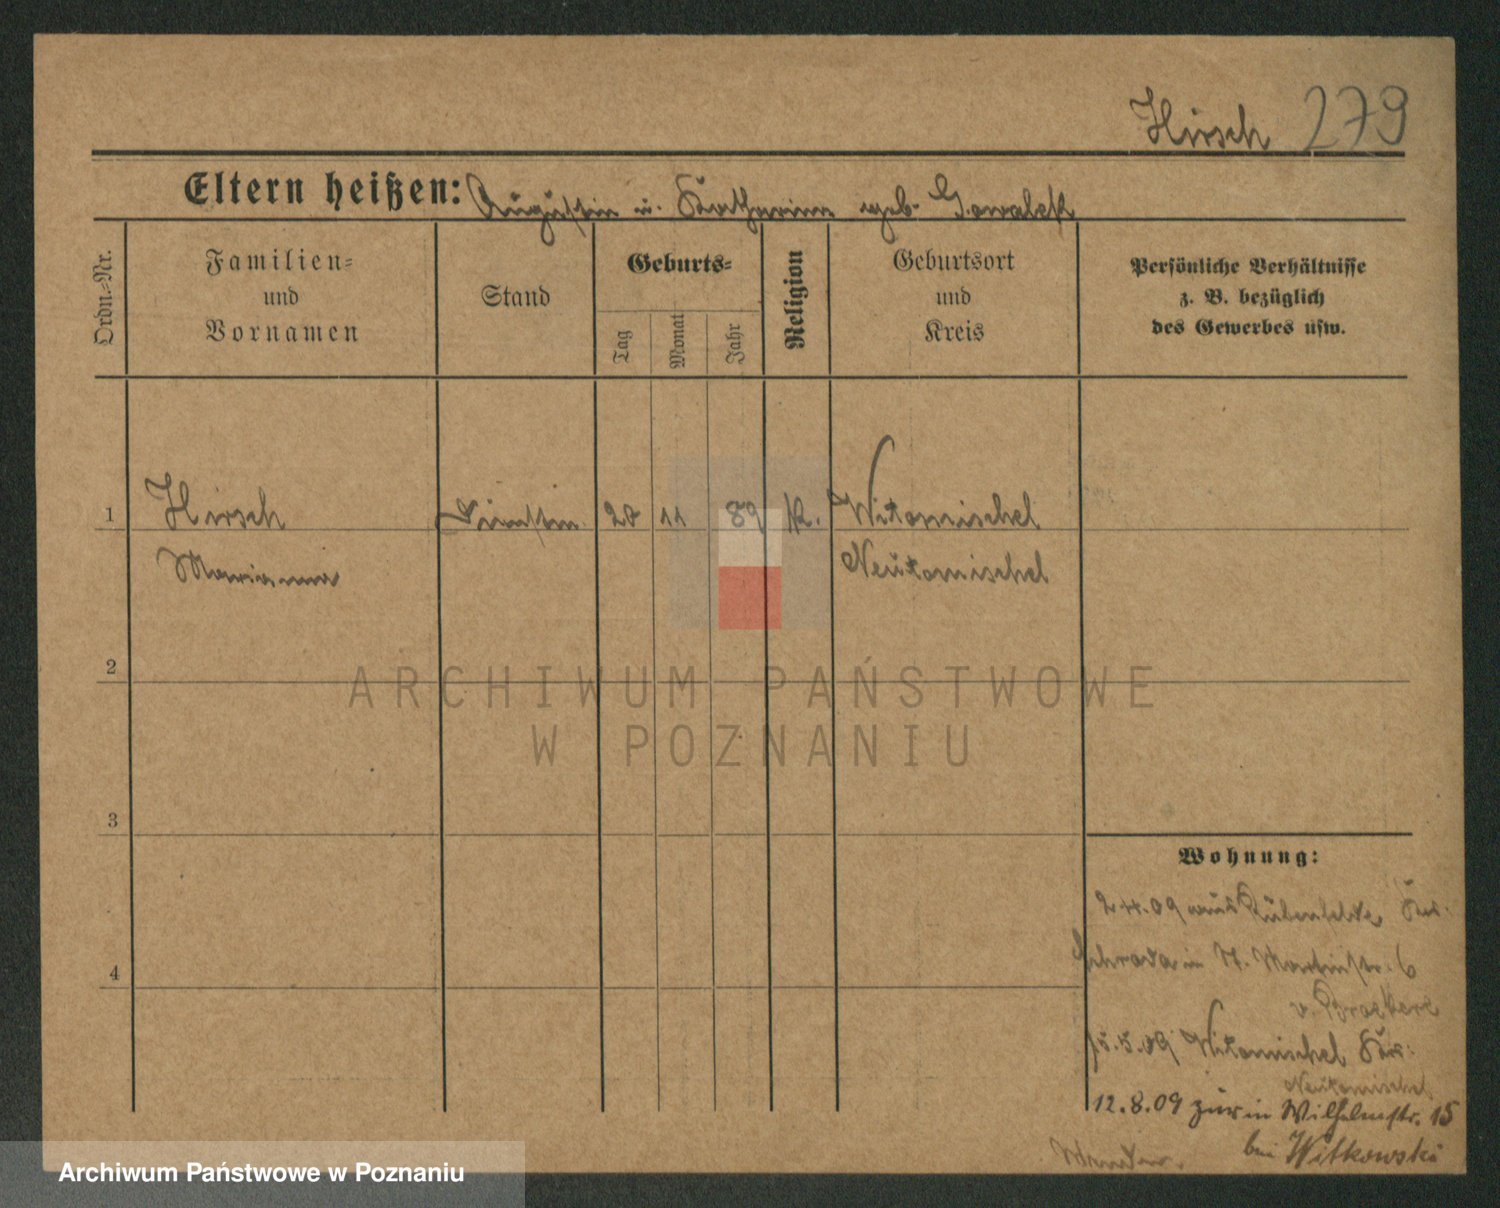 Hirsch 279
Eltern heißen: Augustin u. Katharina geb. Gowalek
Ordn.-Nr.
Familien-
und
Vornamen
Stand
Geburts-
Tag
Monat
Jahr
Religion
Geburtsort
und
Kreis
Persönliche Verhältnisse
z. B. bezüglich
des Gewerbes usw.
1 Hirsch 20 11 89 k. Witomischel
Marianna Neutomischel
2
3
4
Wohnung:
2.4.09 aus
Schroda in St. Martinstr. 6
v.
15.5.09 Witomischel Krs.
Neutomischel
12.8.09 zur in Wilhelmstr. 15
bei Witkowski
ARCHIWUM PAŃSTWOWE
W POZNANIU
Archiwum Państwowe w Poznaniu